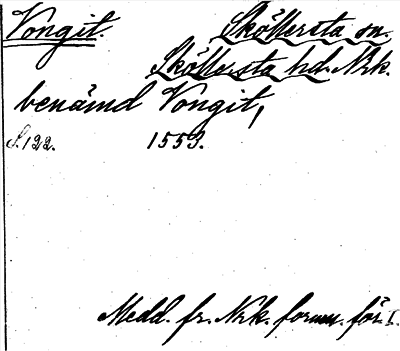 Vongit. Sköllersta sn.
Sköllersta hd. Nrk.
benämd Vongit,
S. 122. 1553.
Medd. fr. Nrk. fornm. för. I.